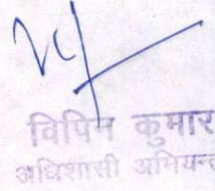 विपिन कुमार
अधिशासी अभियन्